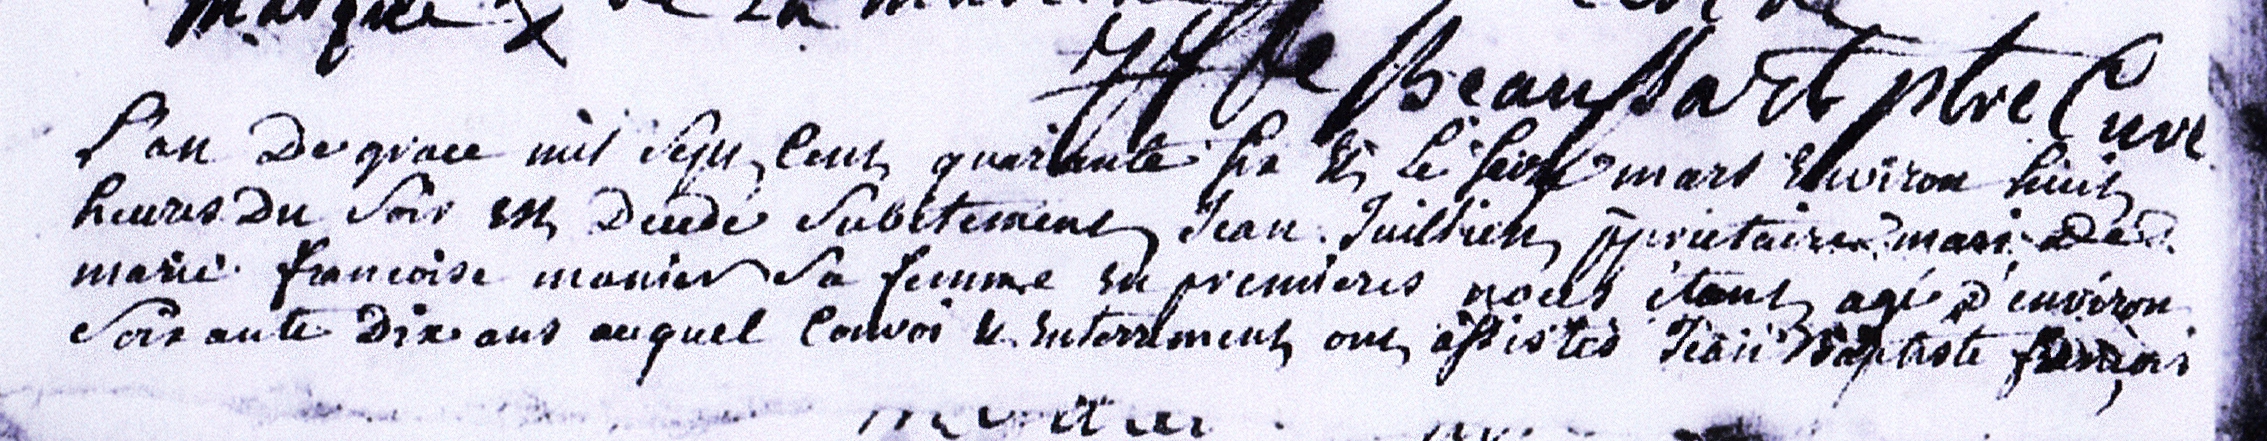 marque X de la
De Beaussart ptre Curé
L'an De grace mil Sept Cent quarante six et le seize mars Environ huit
heures Du Soir est Decedé Subitement Jean Juillien ppriétaire mari de
marie francoise monier Sa femme En premieres noces étant agé d'environ
Soixante Dix ans auquel Convoi & Enterrement ont assistés Jean Baptiste françois